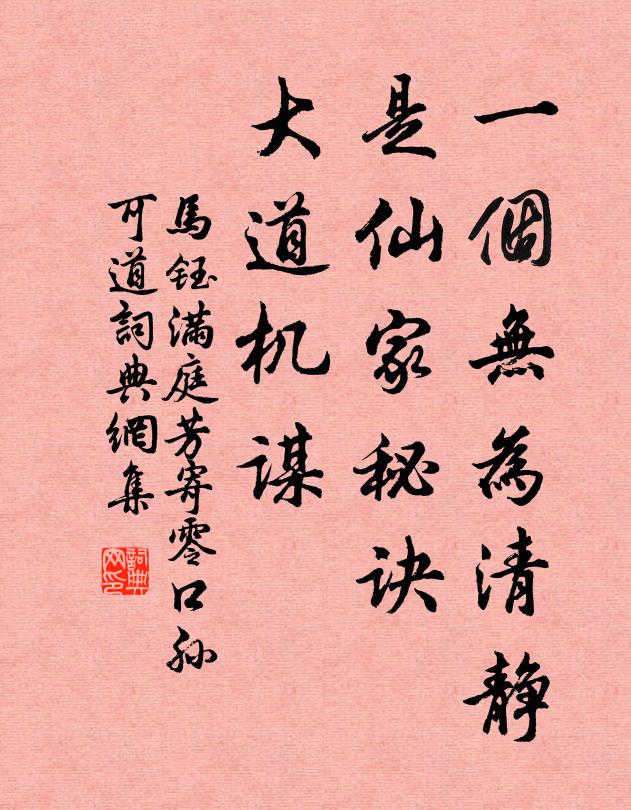 一個無為清靜
是仙家秘诀
大道机谋
馬鈺满庭芳寄零口孙
可道詞典網集
詞典网印